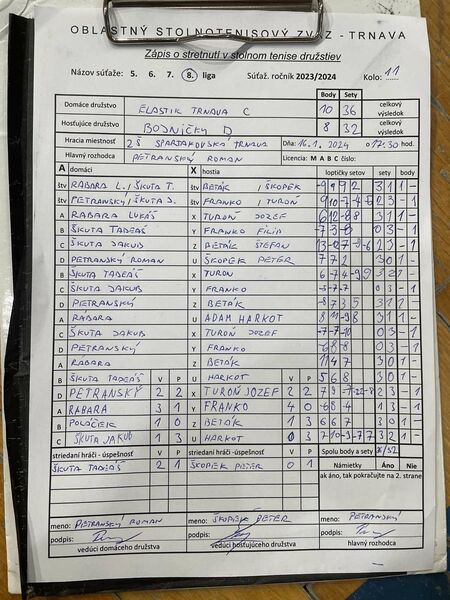 OBLASTNÝ STOLNOTENISOVÝ ZVÄZ - TRNAVA
Zápis o stretnutí v stolnom tenise družstiev
Názov súťaže: 5. 6. 7. 8. liga Súťaž. ročník 2023/2024 Kolo: 11
Body Sety
Domáce družstvo ELASTIK TRNAVA C 10 36 celkový výsledok
Hosťujúce družstvo BODNIČKY D 8 32 celkový výsledok
Hracia miestnosť ZŠ SPARTAKOVSKÁ TRNAVA Dňa: 16.1. 2024 o 17:30 hod.
Hlavný rozhodca PETRANSKÝ ROMAN Licencia: M A B C číslo:
A domáci X hostia loptičky setov sety body
štv RABARA L. / ŠKUTA T. štv BETÁK / ŠKOPEK -9 9 9 2 3 1 1 -
štv PETRANSKÝ / ŠKUTA J. štv FRANKO / TUROŇ 2 3 - 1
A RABARA LUKÁŠ X TUROŇ JOZEF 3 1 1 -
B ŠKUTA TADEÁŠ Y FRANKO FILIP 0 3 - 1
C ŠKUTA JAKUB Z BETÁK ŠTEFAN 2 3 - 1
D PETRANSKÝ ROMAN U ŠKOPEK PETER 7 7 2 3 0 1 -
B ŠKUTA TADEÁŠ X TUROŇ 3 2 1 -
C ŠKUTA JAKUB Y FRANKO -3 -7 -7 0 3 - 1
D PETRANSKÝ Z BETÁK -8 7 3 5 3 1 1 -
A RABARA U ADAM HARKOT 8 11 -9 8 3 1 1 -
C ŠKUTA JAKUB X TUROŇ JOZEF -7 -7 -10 0 3 - 1
D PETRANSKÝ Y FRANKO -6 -8 -8 0 3 - 1
A RABARA Z BETÁK 11 4 7 3 0 1 -
B ŠKUTA TADEÁŠ V P U HARKOT V P 5 6 8 3 0 1 -
D PETRANSKÝ 2 2 X TUROŇ JOZEF 2 2 2 3 - 1
A RABARA 3 1 Y FRANKO 4 0 1 3 - 1
B POLÁČEK 1 0 Z BETÁK 1 3 6 6 7 3 0 1 -
C ŠKUTA JAKUB 1 3 U HARKOT 0 3 7 -10 9 -7 7 3 2 1 -
striedaní hráči - úspešnosť V P striedaní hráči - úspešnosť V P Spolu body a sety
ŠKUTA TADEÁŠ 2 1 ŠKOPEK PETER 0 1 Námietky Áno Nie
ak áno, tak pokračujte na 2. strane
meno: PETRANSKÝ ROMAN meno: ŠKOPEK PETER meno: PETRANSKÝ
podpis: podpis: podpis:
vedúci domáceho družstva vedúci hosťujúceho družstva hlavný rozhodca